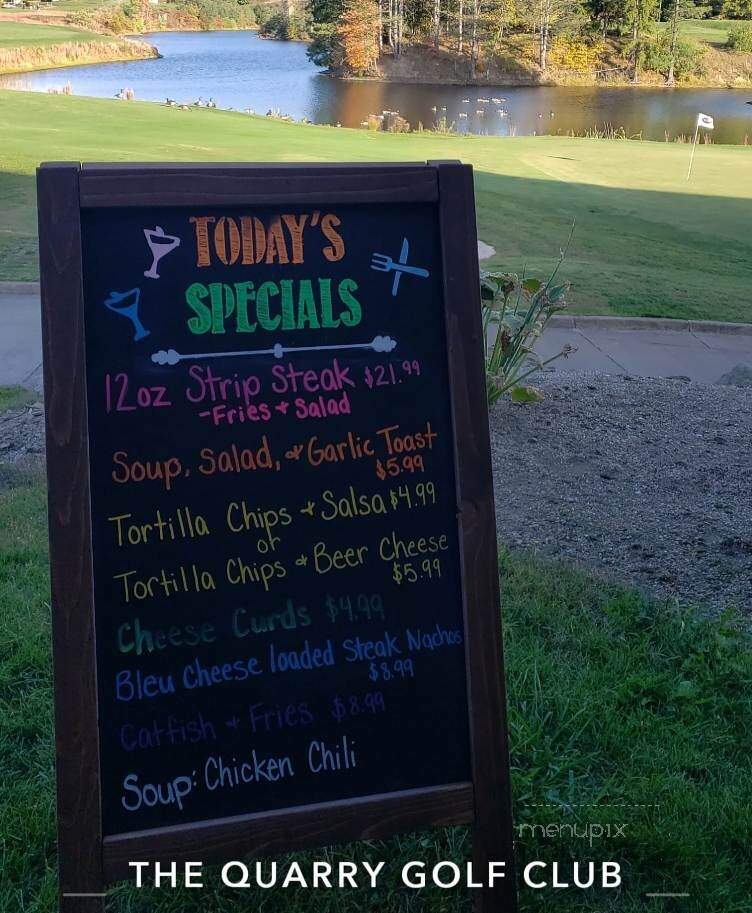 TODAY'S
SPECIALS
12oz Strip Steak $21.99
-Fries + Salad
Soup, Salad, + Garlic Toast
$5.99
Tortilla Chips + Salsa $4.99
or
Tortilla Chips + Beer Cheese
$5.99
Cheese Curds $4.99
Bleu Cheese loaded Steak Nachos
$8.99
Catfish + Fries $8.99
Soup: Chicken Chili
menupix
THE QUARRY GOLF CLUB